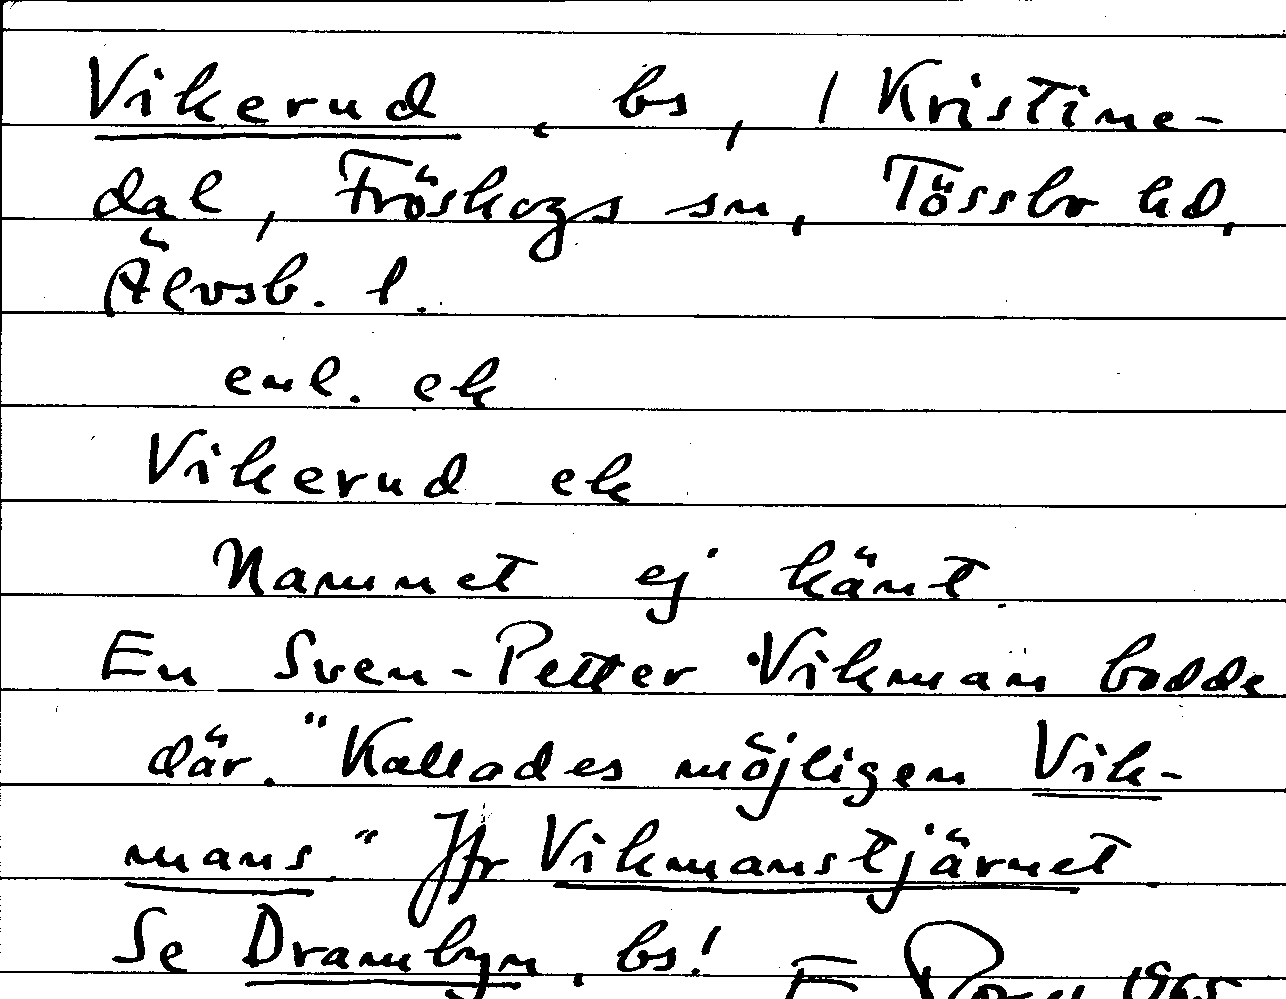 Vikerud, bs, / Kristine-
dal, Fröskogs sn, Tössbo hd,
Älvsb. l.
enl. ek
Vikerud ek
Namnet ej känt.
En Sven-Petter Vikman bodde
där. "Kallades möjligen Vik-
mans" Jfr Vikmanstjärnet.
Se Drambyn, bs!
1965